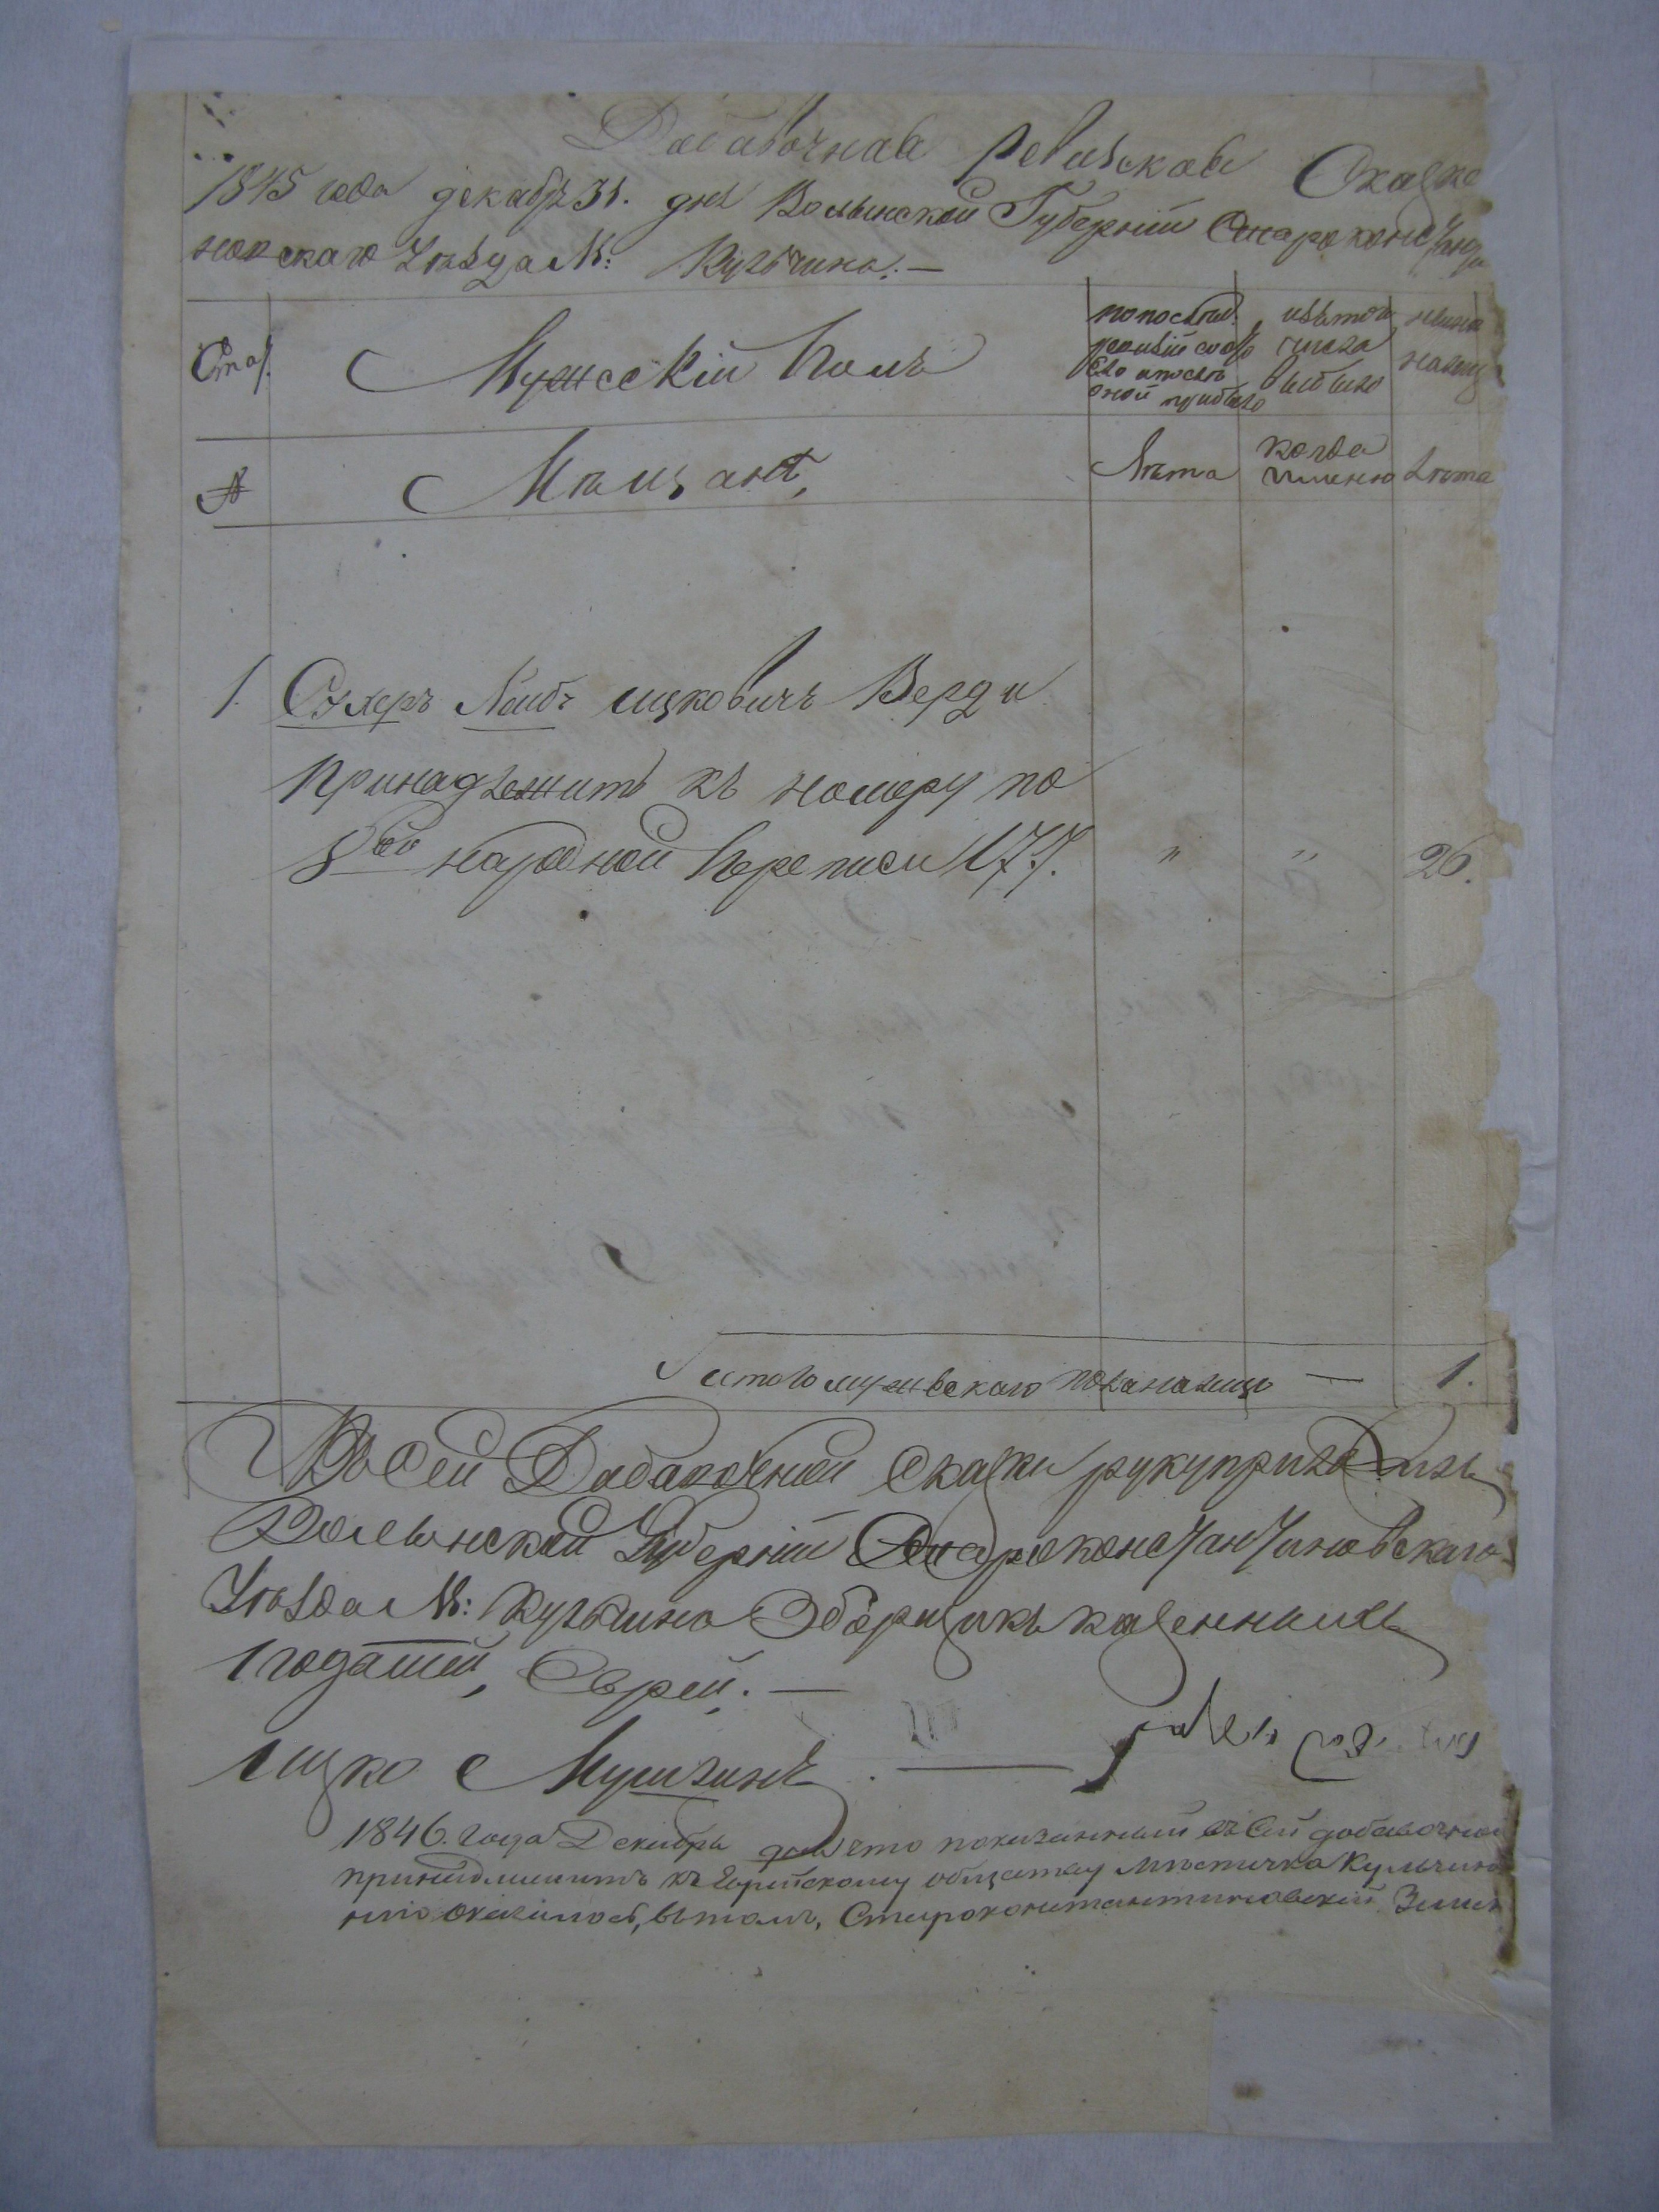 Добавочная Ревизская Сказка
1845 года декабря 31. дня Волынской Губерніи Староконстан
новскаго Уѣзда М: Кульчина. —
Мужескій Полъ
по послѣд. изъ того нынѣ
ревизіи состо числа налиц
яло и послѣ выбыло
оной прибыло
№ Мѣщанѣ, Лѣта когда имянно Лѣта
1. Сухеръ Лейбъ Ицковичъ Верди
принадлежитъ къ номеру по
8ой народной Переписи 177. " " 26.
итого мужескаго пола налицо — 1.
Къ сей Добавочной Сказки руку приложилъ
Волынской Губерніи Староконстантиновскаго
Уѣзда М: Кульчина Зборщикъ казенныхъ
податей, Еврей. —
Ицко Мушлинъ . —
1846 года Декабря дня что показанный въ сей добавочной
принадлежитъ къ Еврейскому обществу мѣстечка Кульчина
оказалось, въ томъ, Староконстантиновский Земск